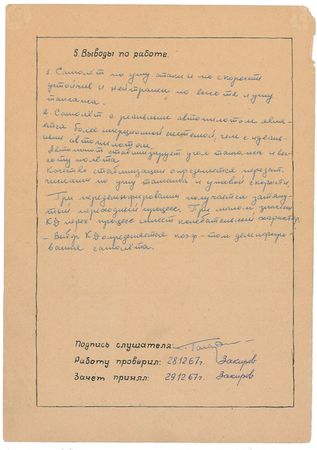 5. Выводы по работе.
1. Самолёт по углу атаки и по скорости
устойчив и нейтрален по высоте и углу
тангажа.
2. Самолёт с реальным автопилотом явля-
ется более инерционной системой, чем с идеаль-
ным автопилотом.
Автопилот стабилизирует угол тангажа и вы-
соту полёта.
Качество стабилизации определяется передат.
числами по углу тангажа и угловой скорости.
- При передемпфировании получается затяну-
тый переходный процесс. При малом значении
процесс имеет колебательный характер.
- Выбор определяется коэф-том демпфиро-
вания самолёта.
Подпись слушателя:
Работу проверил: 28.12.67г. Закиров
Зачет принял: 29.12.67г. Закиров